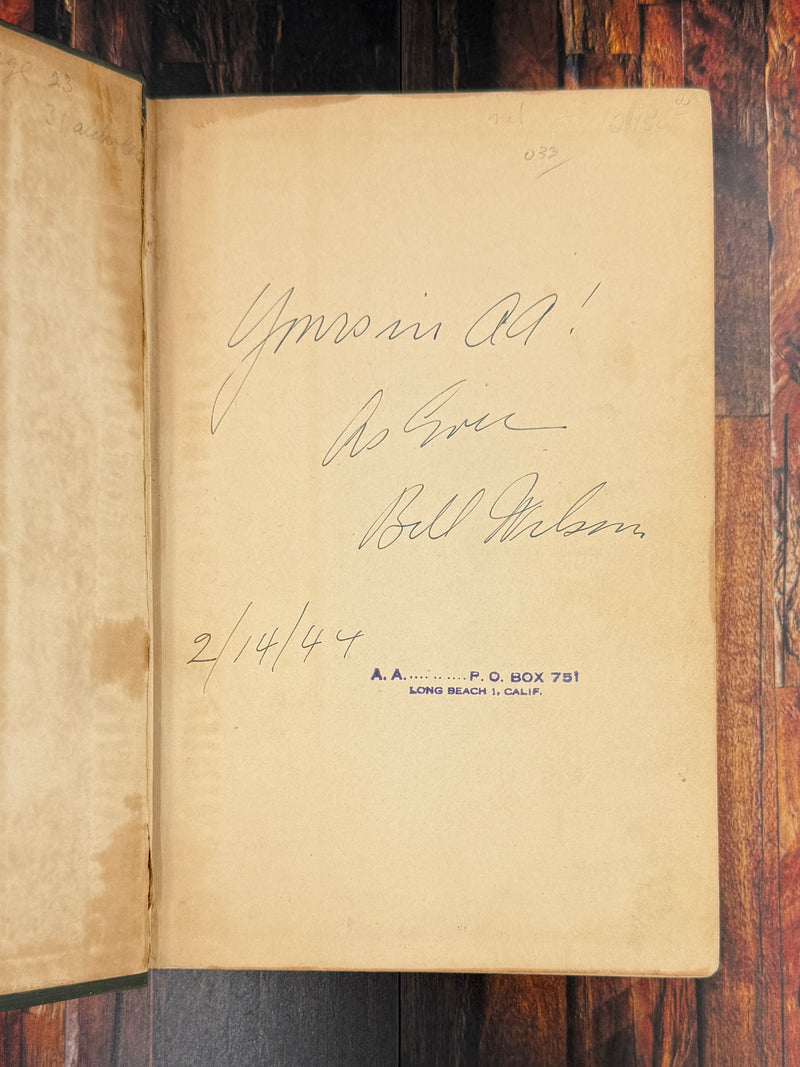 age 23
31 alcoholic
033
Yours in AA!
As Ever
Bill Wilson
2/14/44
A. A. .......... P. O. BOX 751
LONG BEACH 1, CALIF.